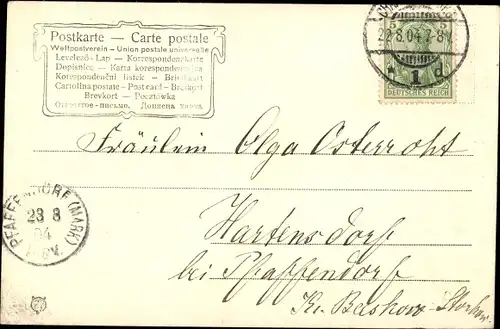 Postkarte — Carte postale
Weltpostverein - Union postale universelle
Levelező-Lap — Korrespondenzkarte
Dopisnice — Karta korespondencyjna
Korespondenční lístek — Briefkaart
Cartolina postale - Post card - Brefkort
Brevkort — Pocztówka
Открытое письмо.
22.8.04.7-8V.
1 d
5 5
DEUTSCHES REICH
Fräulein Olga Osterroht
Hartensdorf
bei Pfaffendorf
Kr. Beeskow-Storkow.
PFAFFENDORF (MARK)
23 8
04